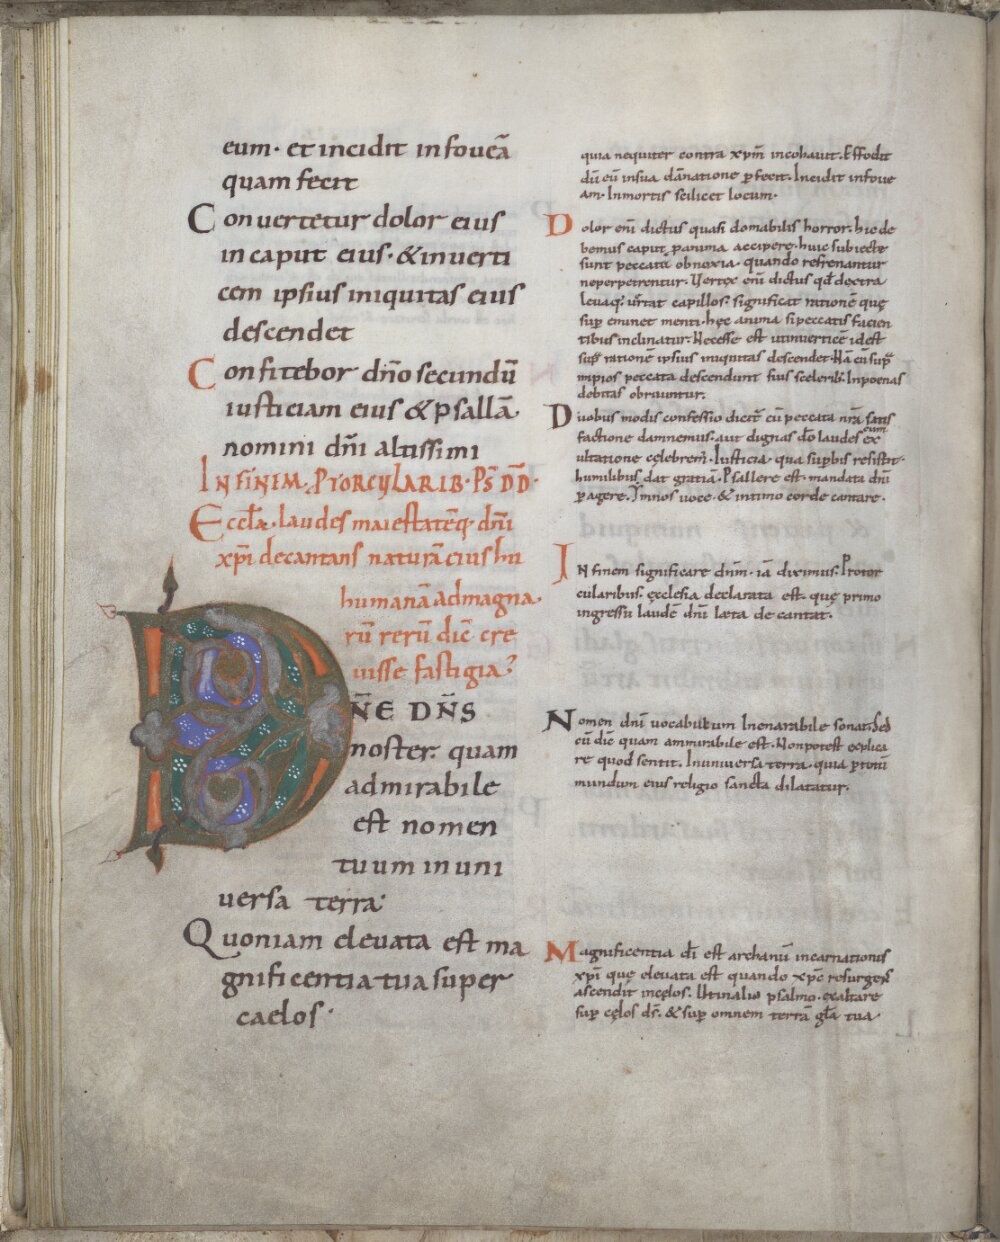 eum· et incidit in foueā
quam fecit
Conuertetur dolor eius
in caput eius· & in uerti
cem ipsius iniquitas eius
descendet
Confitebor dn̄o secundū
iusticiam eius & psallā
nomini dn̄i altissimi
IN FINEM. P̱ TORCULARIB· PS̄ DD̄·
Eccl̄æ· laudes maiestatēq· dn̄i
xp̄i decantans naturā eius hu
humanā ad magna
rū rerū dic̄ cre
uisse fastigia?
DN̄E DN̄S
noster quam
admirabile
est nomen
tuum in uni
uersa terra·
Quoniam eleuata est ma
gnificentia tua super
caelos·
quia nequiter contra xp̄m incohauit. Effodit
dū eū in sua dānatione ꝑfecit. Incidit in foue
am· In mortis scilicet locum·
Dolor enī dictus quasi domabilis horror. hic de
bemus caput ꝑ anima accipere· huic subiecte
sunt peccata obnoxia· quando refrenantur
ne perpetrentur. Uertex enī dictus qd̄ dextra
leuaq; uertat capillos. significat rationē quę
suꝑ eminet menti· hęc anima si peccatis facien
tibus inclinatur. Necesse est ut in uerticē id est
suꝑ rationē ipsius iniquitas descendet. Nā cū suꝑ
impios peccata descendunt suis scelerib; In poenas
debitas obruuntur.
Duobus modis confessio dicit̄ cū peccata nr̄a satis
factione damnemus. aut dignas do laudes cum ex
ultatione cęlebrem̄. Iusticia· qua suꝑbis resistit·
humilibus dat gratiā. Psallere est· mandata dn̄i
ꝑagere. Ymnos uoce· & intimo corde cantare.
In finem significare dnm̄· iā diximus. Pro tor
cularibus. ęcclesia declarata est· quę primo
ingressu laudē dn̄i læta decantat·
Nomen dn̄i uocabulum Inenarabile sonat. Sed
cū dic̄ quam ammirabile est. Non potest explica
re quod sentit. In uniuersa terra· quia ꝑ totū
mundum eius religio sancta dilatatur.
Magnificentia dī est archanū incarnationis
xp̄i quę eleuata est quando xp̄c resurgens
ascendit in cęlos. Ut in alio psalmo· exaltare
suꝑ cęlos ds̄· & suꝑ omnem terrā gl̄a tua·